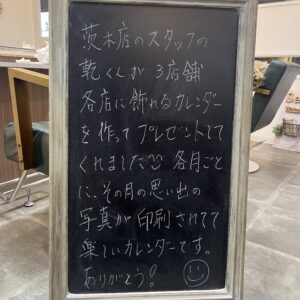 茨木店のスタッフの
乾くんが 3店舗
各店に飾れるカレンダー
を作ってプレゼントして
くれました 各月ごと
に、その月の思い出の
写真が印刷されてて
楽しいカレンダーです。
ありがとう!